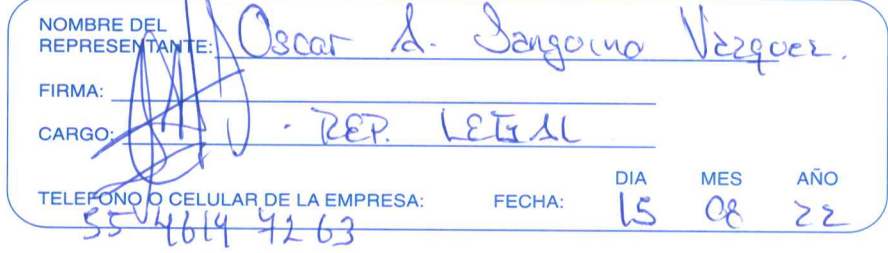 NOMBRE DEL
REPRESENTANTE: Oscar A. Sangoino Vazquez.
FIRMA:
CARGO: . REP. LEGAL
TELEFONO O CELULAR DE LA EMPRESA: FECHA: DIA MES AÑO
55 4614 7263 15 08 22